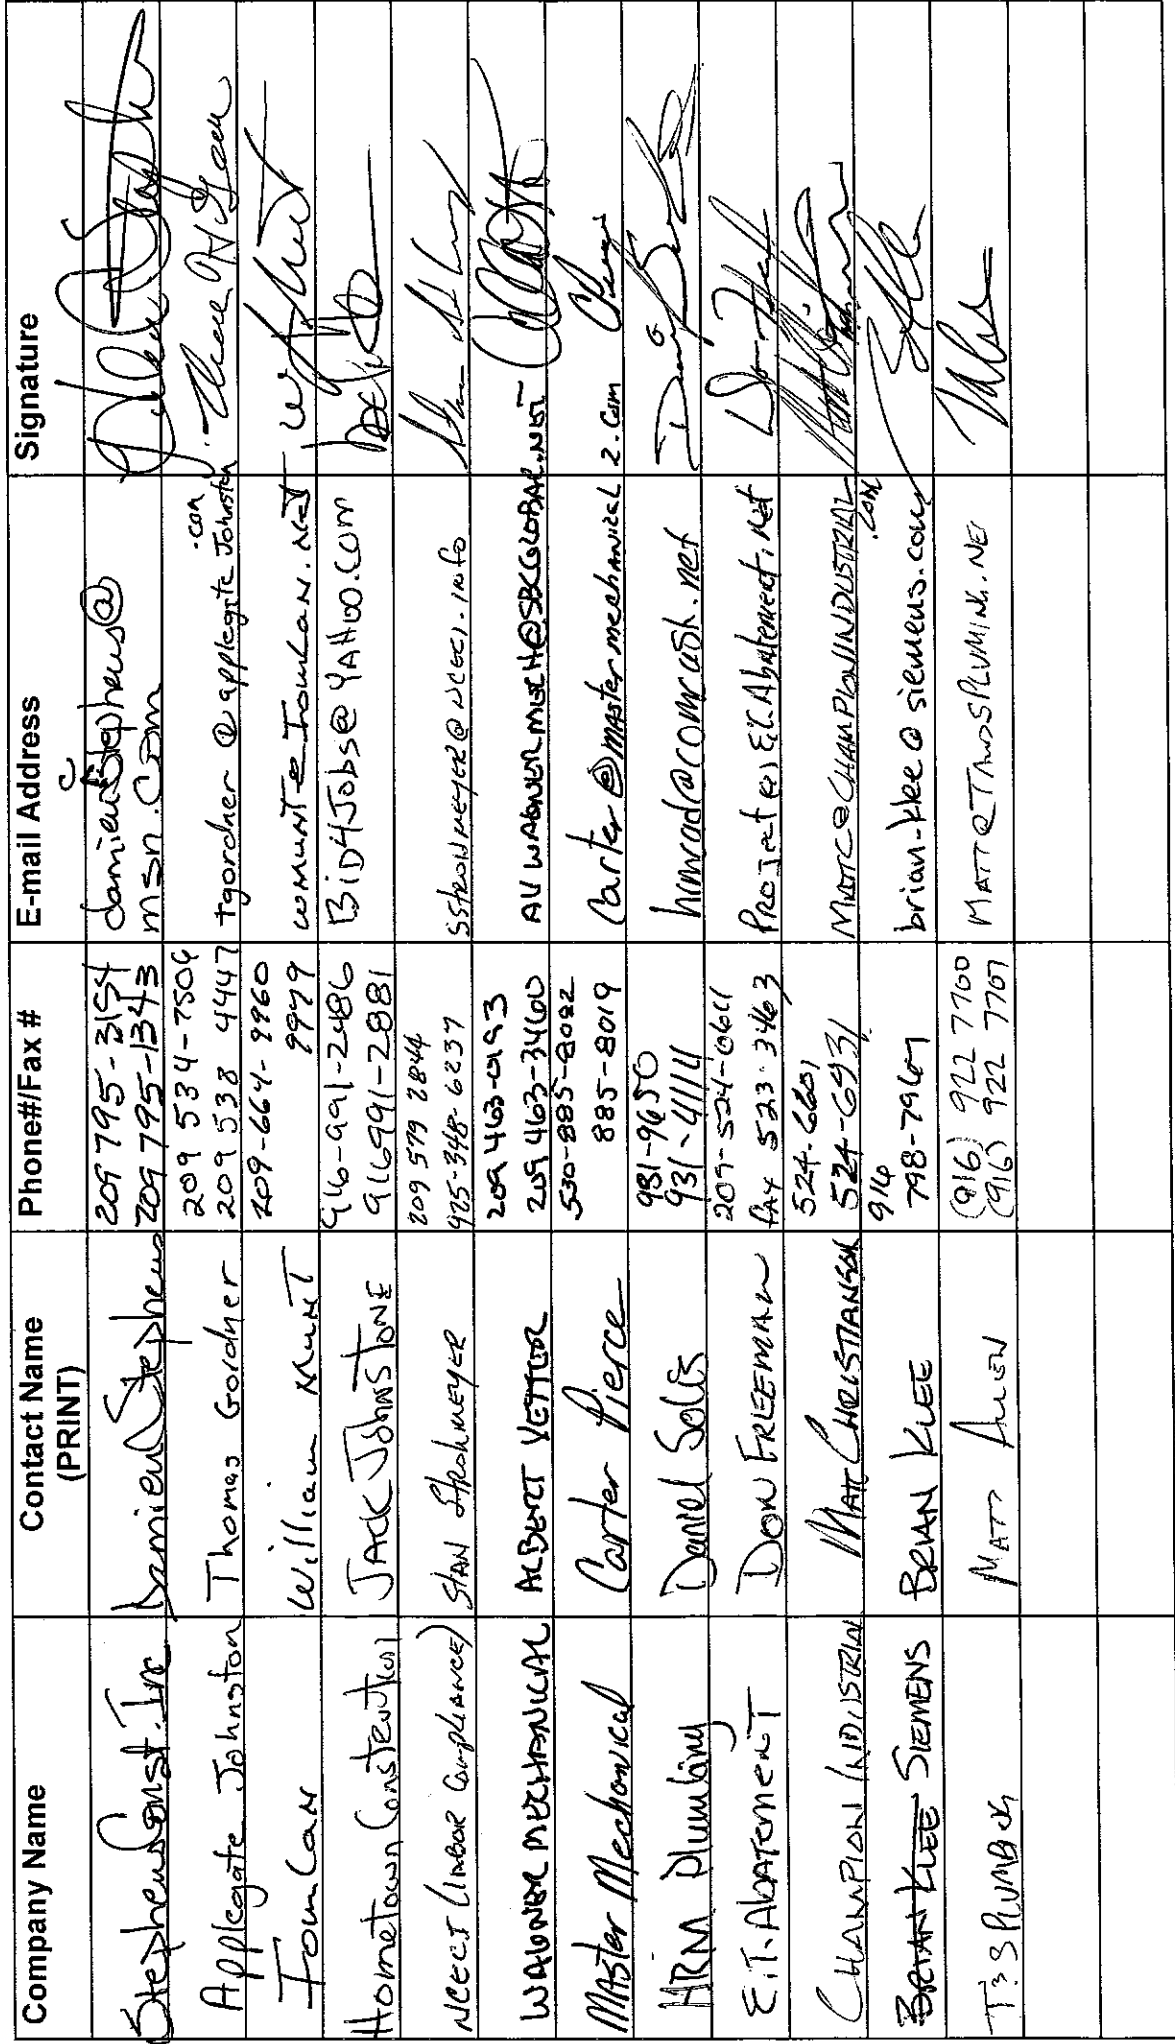 Company Name
Contact Name
(PRINT)
Phone#/Fax #
E-mail Address
Signature
Stephens Const. Inc
Damien Stephens
209 795-3154
209 795-1343
damien stephens@
msn.com
Applegate Johnston
Thomas Gordner
209 534-7506
209 538 4447
tgordner @ applegate Johnston
.com
William Munt
209-664-9960
9979
Hometown Construction
JACK JOHNSTONE
916-991-2486
916 991-2881
BiD4Jobs@YAHOO.COM
NCECI (LABOR Compliance)
STAN Strohmeyer
209 579 2844
925-348-6237
SSTROHMEYER@NCECI.INFO
WAGNER MECHANICAL
ALBERT VETTER
209 463-0193
209 463-3460
AV WAGNER MECH@SBCGLOBAL.NET
MAster Mechanical
Carter Pierce
530-885-8022
885-8019
Carter@master mechanical 2.com
HRM Plumbing
Daniel Solis
931-4111
hrmrad@comcash.net
E.I. Abatement
DON FREEMAN
209-524-0611
FAX 523-3463
Project @ E.I. Abatement.Net
CHAMPION INDUSTRIAL
MATT CHRISTIANSON
524-6601
524-6931
MATTC@CHAMPIONINDUSTRIAL
.COM
BRIAN KLEE SIEMENS
BRIAN KLEE
916
798-7967
brian.klee@siemens.com
T & S PLUMBING
MATT ALLEN
(916) 922 7700
(916) 922 7707
MATT@TANDSPLUMING.NE